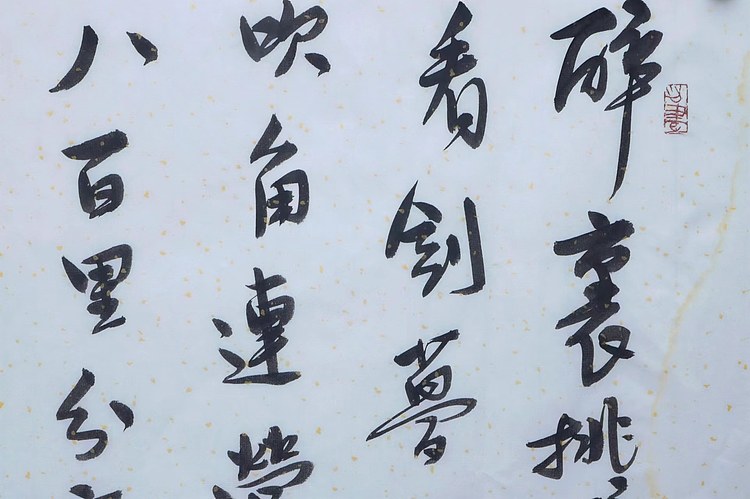 醉裏挑
看劍夢
吹角連營
八百里分